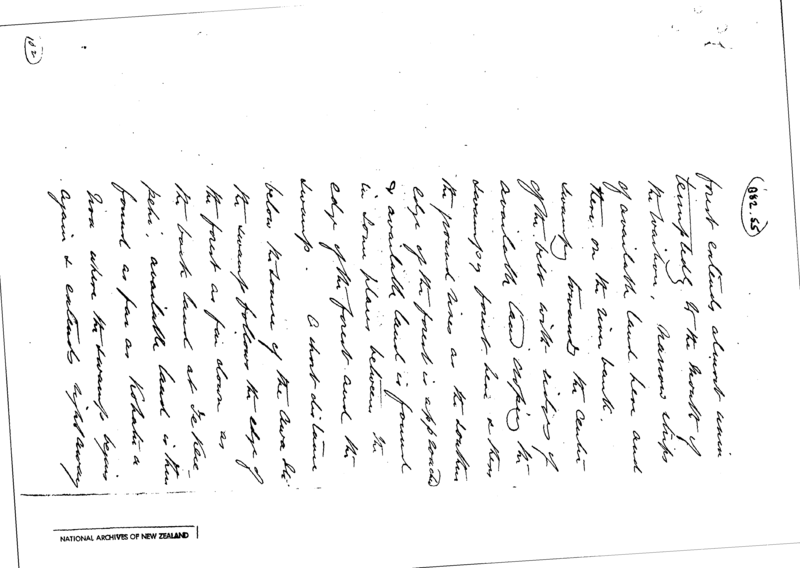 B82.55
forest extends almost unin
terruptedly to the mouth of
the Wairoa, narrow strips
of available land here and
there on the river bank.
Swamp towards the centre
of the belt with ridges of
available land
swampy forest here & there
the ground rises as the southern
edge of the forest is approached
& available land is found
in some places between the
edge of the forest and the
swamp. A short distance
below the source of the Awa
the swamp follows the edge of
the forest as far down as
the back land at Te
available land is then
found as far as
where the swamp begins
again & extends right away
182
NATIONAL ARCHIVES OF NEW ZEALAND